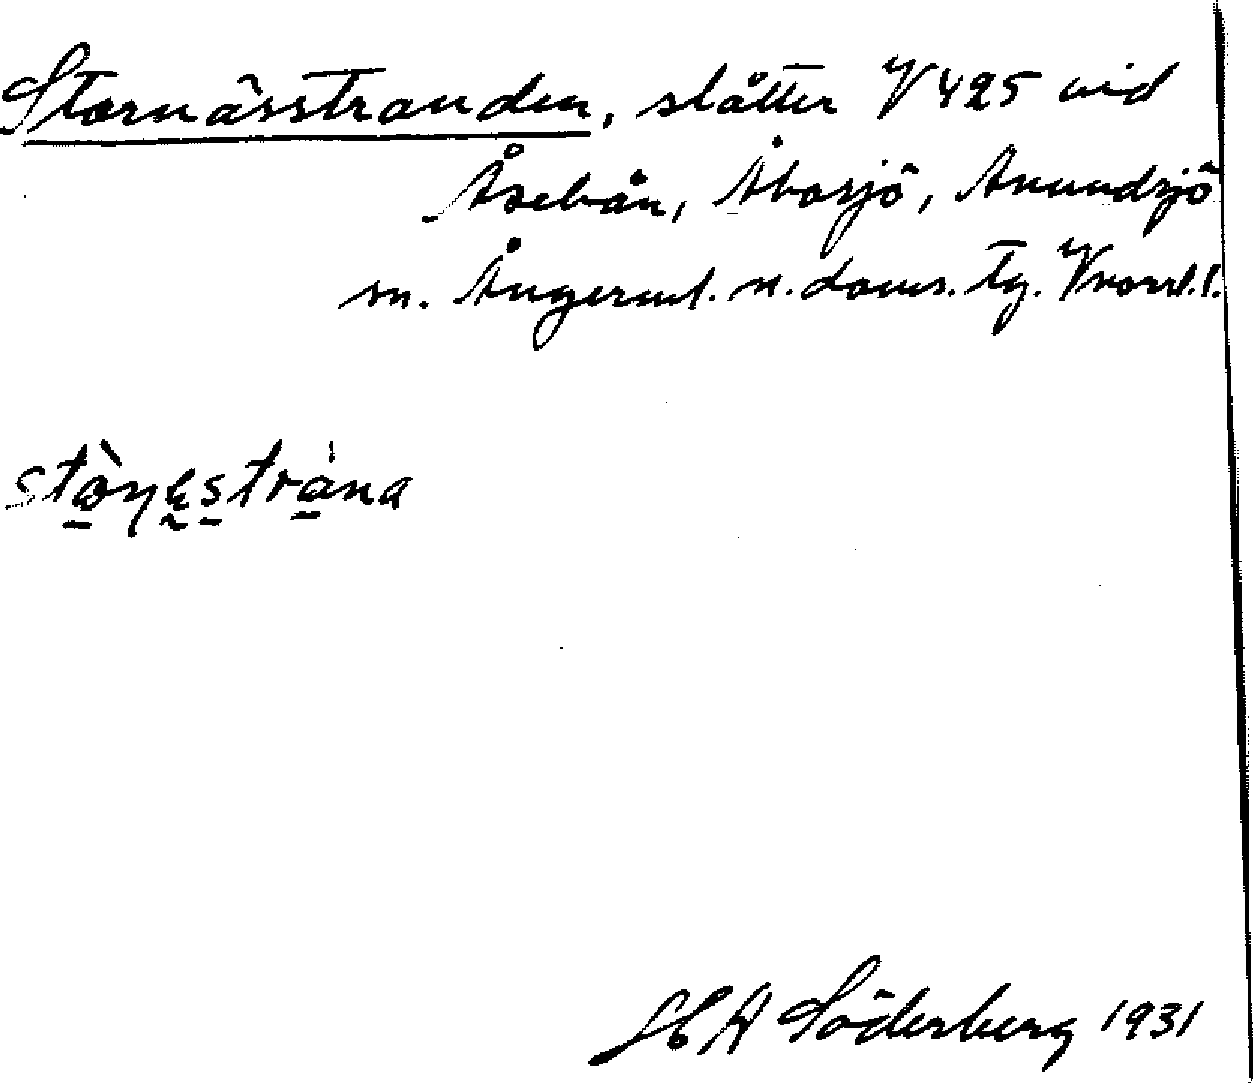 Stornässtranden, slåtter V 425 vid
Åsebån, Åbosjö, Anundsjö
sn. Ångerml. n. doms. tg. Vnorrl. l.
stò̱ŋɛ̰s̱trà̱na
Söderberg 1931